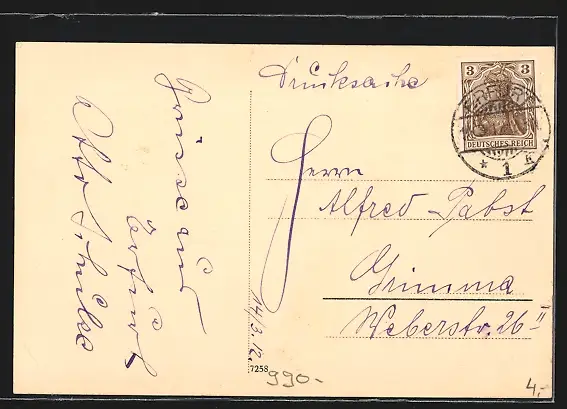 Grüsse aus
Erfurt
Otto Schulze
Drucksache
3 3
DEUTSCHES REICH
ERFURT
* 1 k
Herrn
Alfred Pabst
Grimma
Weberstr. 26 II
14/3.12.
7258
990.-
4,-